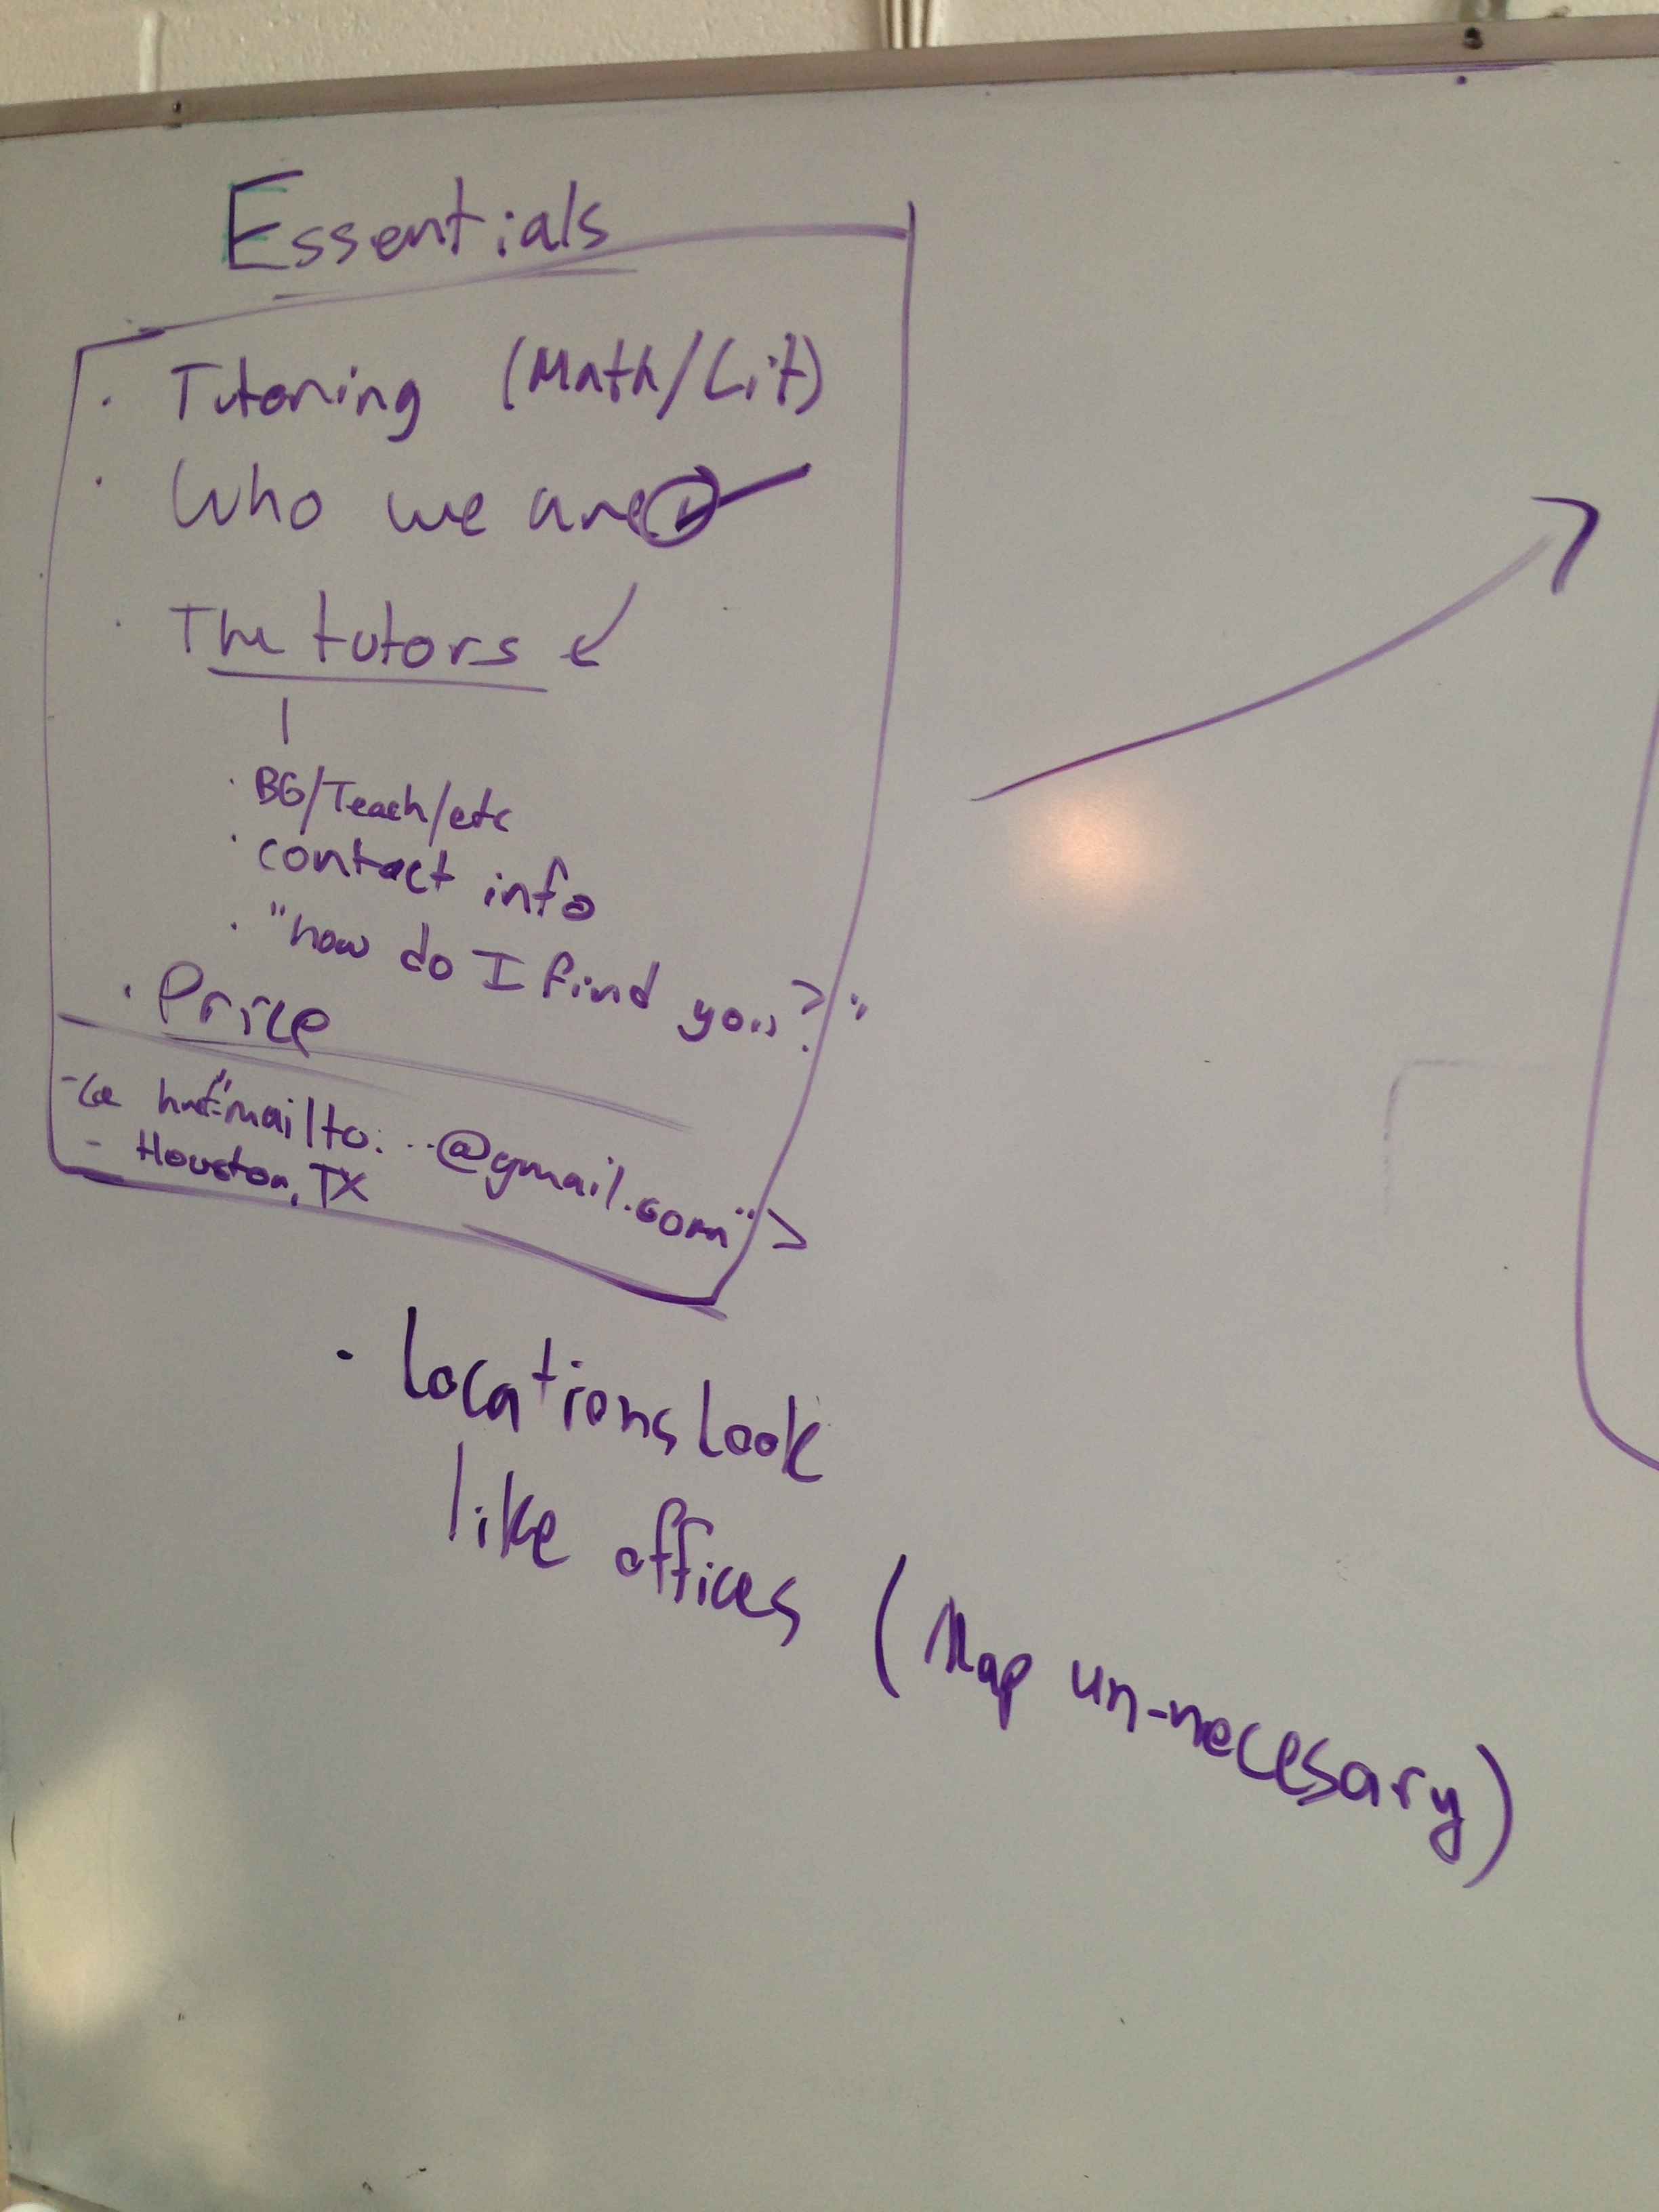 Essentials
· Tutoring (Math/Lit)
· Who we are
· The tutors
· BG/Teach/etc
· contact info
· "how do I find you?"
· Price
-<a href="mailto:...@gmail.com">
- Houston, TX
· Locations look
like offices (Map un-necesary)